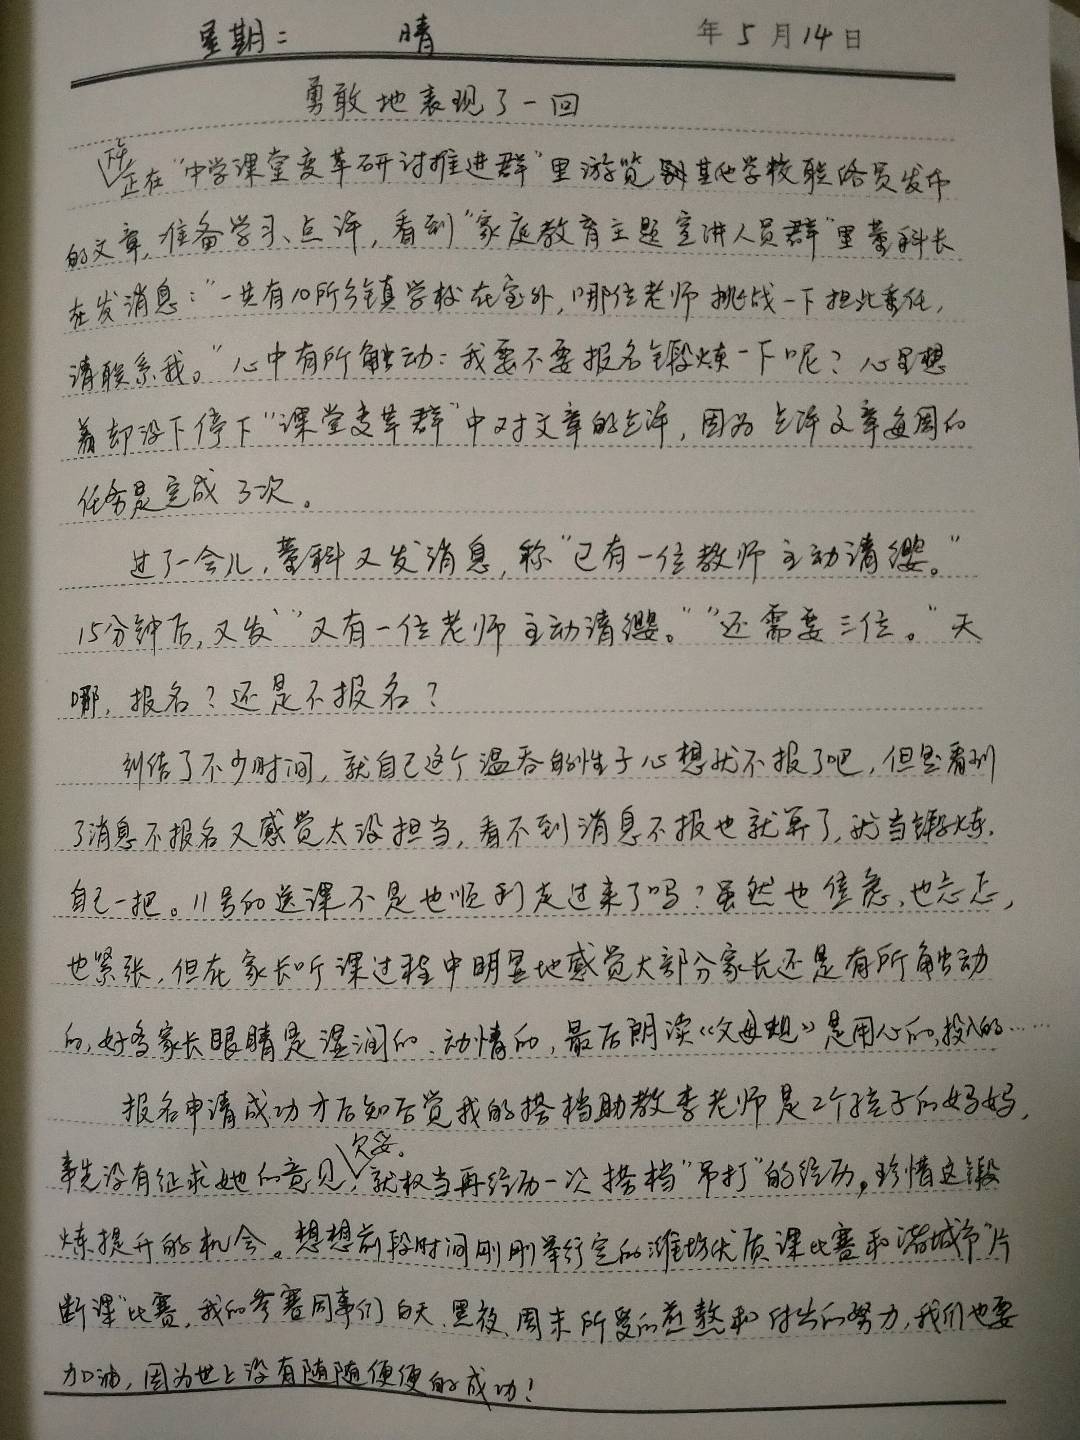 星期二 晴 年5月14日
勇敢地表现了一回
下午正在“中学课堂变革研讨推进群”里游览其他学校联络员发布
的文章,准备学习、点评,看到“家庭教育主题宣讲人员群”里董科长
在发消息:“一共有10所乡镇学校在室外,哪位老师挑战一下担此重任,
请联系我。”心中有所触动:我要不要报名锻炼一下呢?心里想
着却没下停下“课堂变革群”中对文章的点评,因为点评文章每周的
任务是完成3次。
过了一会儿,董科又发消息,称“已有一位教师主动请缨。”
15分钟后,又发“又有一位老师主动请缨。”“还需要三位。”天
哪,报名?还是不报名?
纠结了不少时间,就自己这个温吞的性子心想就不报了吧,但是看到
了消息不报名又感觉太没担当,看不到消息不报也就算了,就当锻炼
自己一把。11号的送课不是也顺利走过来了吗?虽然也焦急,也忐忑,
也紧张,但在家长听课过程中明显地感觉大部分家长还是有所触动
的,好多家长眼睛是湿润的、动情的,最后朗读《父母规》是用心的,投入的……
报名申请成功才后知后觉我的搭档助教李老师是2个孩子的妈妈,
事先没有征求她的意见欠妥,就权当再经历一次搭档“吊打”的经历,珍惜这锻
炼提升的机会。想想前段时间刚刚举行完的潍坊优质课比赛和诸城市“片
断课”比赛,我的参赛同事们白天、黑夜、周末所受的煎熬和付出的努力,我们也要
加油,因为世上没有随随便便的成功!